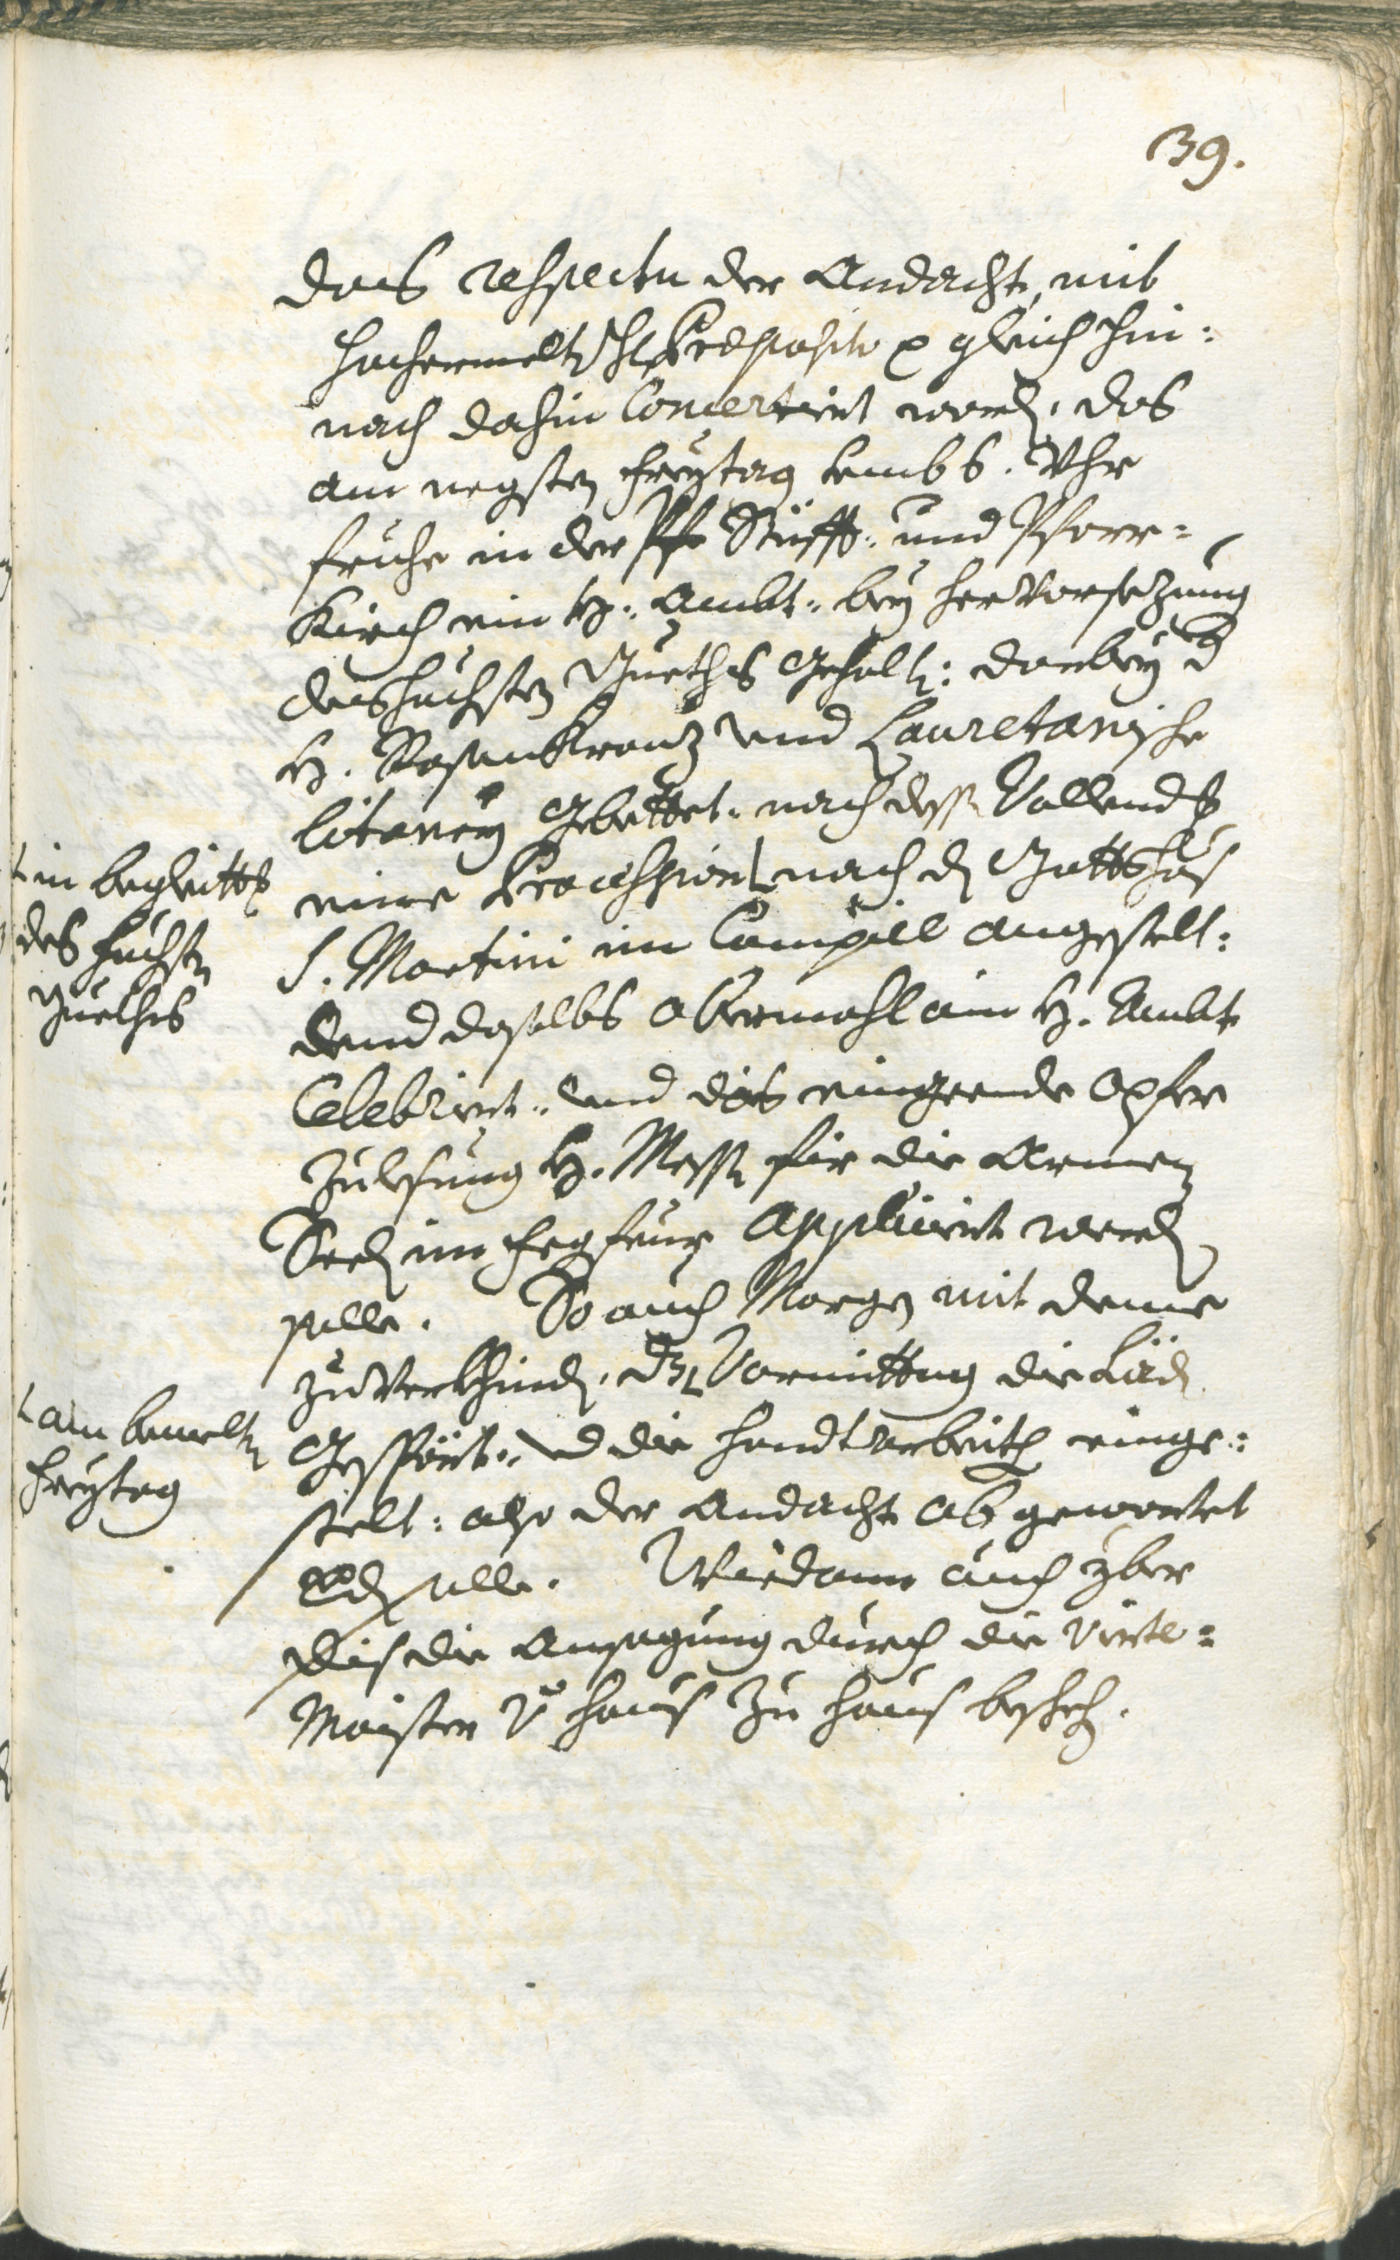 39.
das respectu der Andacht, mit
hochermelt H. Preposito gleich hin:
nach dahin Concertirt word, das
am negsten Freytag umb 6. Uhr
fruhe in der Stüfft- und Pfarr-
Kirch ein H. Ambt bey hervorsezung
des höchsten Gueths gehalt: darbey d
H. Rosenkranz und Lauretanische
litaney gebettet. nach dess Vollend
eine Procession nach d Gottshaus
S. Martini im Campill angestelt:
daselbs abermahl ain H. Ambt
Celebrirt. und das eingeende Opfer
zu lesung H. Mess für die armen
Seel im Fegfeur applicirt werd
solle. So auch Morgen mit deme
zu verkhünd. dz Vormittag die Läd
gespört. und die handtarbeith einge-
stelt: also der Andacht abgewartet
solle. Wie dann auch yber
dis die Ansagung durch die Viertl-
Maister v haus zu haus besheh.
in begleitt
des höchsten
Gueths
am bemelt
Freytag